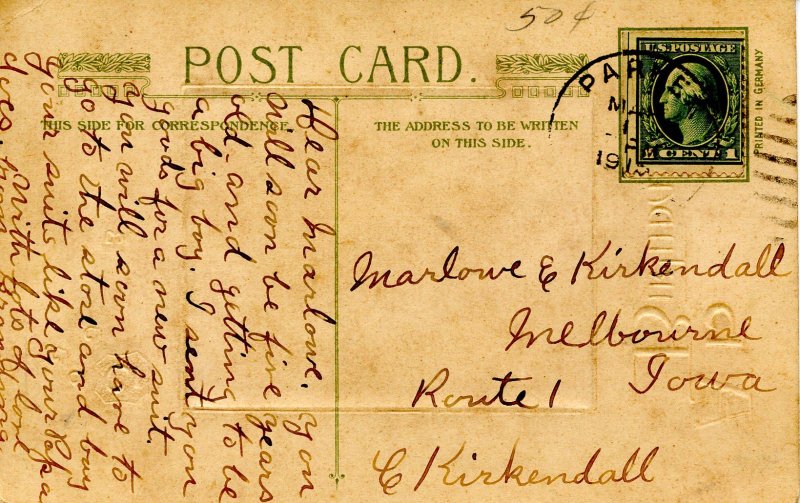 50¢
POST CARD.
THIS SIDE FOR CORRESPONDENCE.
THE ADDRESS TO BE WRITTEN
ON THIS SIDE.
U.S. POSTAGE
1 CENT 1
PRINTED IN GERMANY
Dear Marlowe, you
will soon be five years
old and getting to be
a big boy. I sent you
goods for a new suit.
you will soon have to
go to the store and buy
your suits like your Papa
With lots of love
Marlowe E Kirkendall
Melbourne
Iowa
Route 1
C Kirkendall